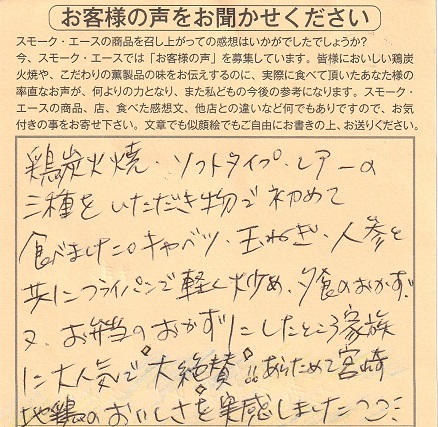 お客様の声をお聞かせください
スモーク・エースの商品を召し上がっての感想はいかがでしたでしょうか?
今、スモーク・エースでは「お客様の声」を募集しています。皆様においしい鶏炭
火焼や、こだわりの薫製品の味をお伝えするのに、実際に食べて頂いたあなた様の
率直なお声が、何よりの力となり、また私どもの今後の参考になります。スモーク・
エースの商品、店、食べた感想文、他店との違いなど何でもありですので、お気
付きの事をお寄せ下さい。文章でも似顔絵でもご自由にお書きの上、お送りください。
鶏炭火焼・ソフトタイプ・レアーの
三種をいただき物で初めて
食べました。キャベツ、玉ねぎ、人参と
共にフライパンで軽く炒め、夕食のおかず、
又、お弁当のおかずにしたところ家族
に大人気で"大絶賛"!!あらためて宮崎
地鶏のおいしさを実感しました